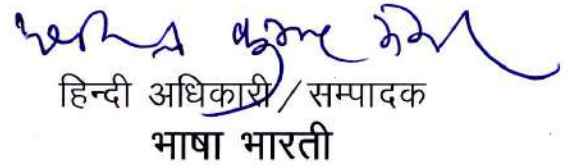 कुमार
हिन्दी अधिकारी / सम्पादक
भाषा भारती